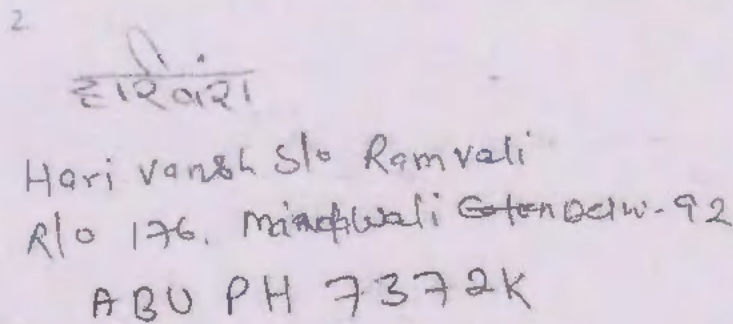 2.
हरिवंश
Hari Vansh S/o Ram Vali
R/o 176. Delhi-92
ABU PH 7372K